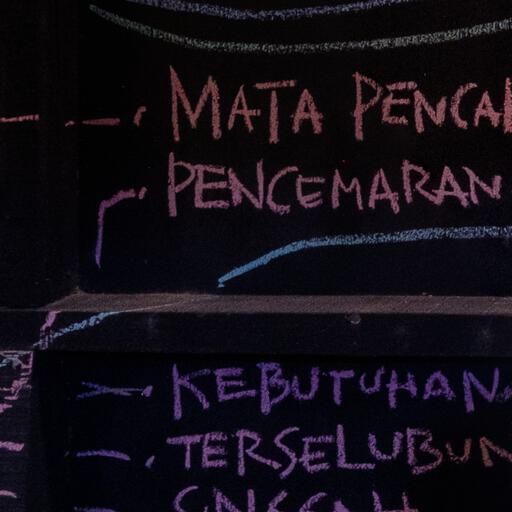 MATA PENCA
PENCEMARAN
KEBUTUHAN
TERSELUBUN